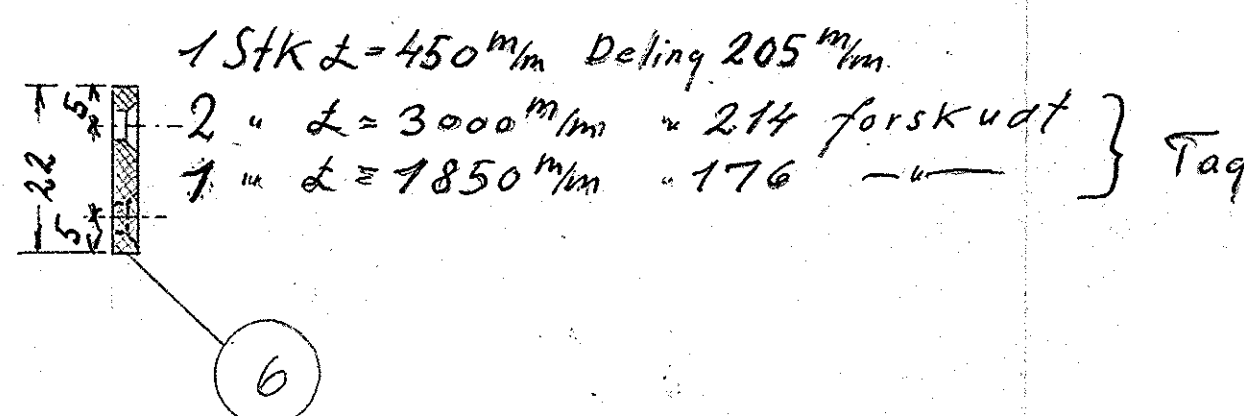 1 Stk L = 450 m/m Deling 205 m/m
2 " L = 3000 m/m " 214 forskudt
1 " L = 1850 m/m " 176 —"—
} Tag
5
22
5
6